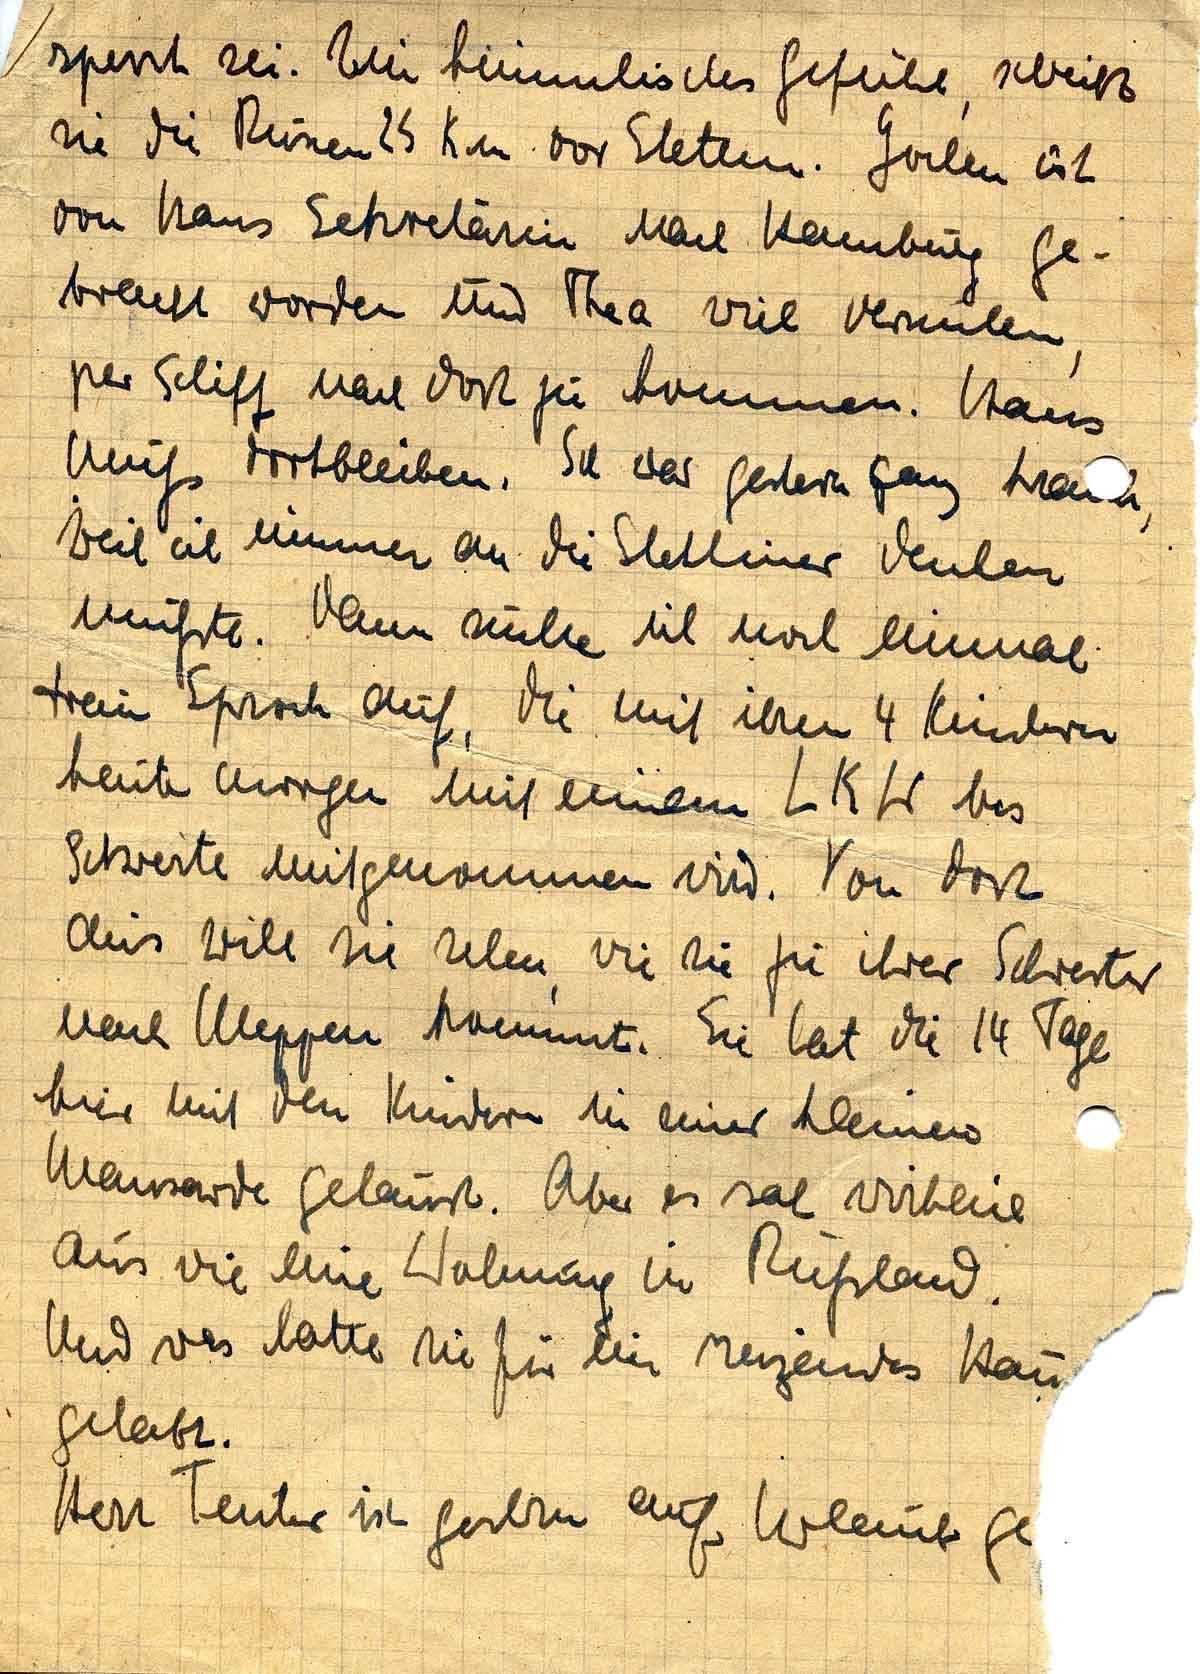 sperrt sei. Ein himmlisches Gefühl, schreibt
sie die Russen 25 Km vor Stettin. Görlen ist
von Hans Sekretärin nach Hamburg ge-
bracht worden und Thea will versuchen,
per Schiff nach dort zu kommen. Hans
muß dortbleiben. Ich war gestern ganz krank,
weil ich immer an die Stettiner denken
mußte. Dann suchte ich noch einmal
Frau auf, die mit ihren 4 Kindern
heute morgen mit einem LKW bis
Schwerte mitgenommen wird. Von dort
aus will sie sehen, wie sie zu ihrer Schwester
nach Meppen kommt. Sie hat die 14 Tage
hier mit den Kindern in einer kleinen
Mansarde gehaust. Aber es sah wirklich
aus wie eine Wohnung in Rußland.
Und was hatte sie für ein reizendes Hau
gehabt.
Herr ist gestern auf Urlaub ge